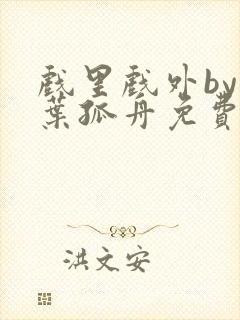 戲里戲外by
葉孤舟免費
洪文安